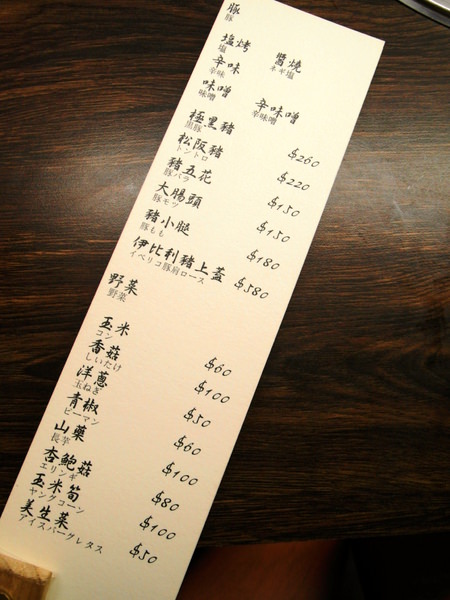 豚
豚
塩烤 醬燒
塩 ネギ塩
辛味
辛味
味噌 辛味噌
味噌 辛味噌
極黑豬 $260
黒豚
松阪豬 $220
トントロ
豬五花 $150
豚バラ
大腸頭 $150
豚モツ
豬小腿 $180
豚もも
伊比利豬上蓋 $580
イベリコ豚肩ロース
野菜
野菜
玉米 $60
コーン
香菇 $100
しいたけ
洋蔥 $50
玉ねぎ
青椒 $60
ピーマン
山藥 $100
長芋
杏鮑菇 $80
エリンギ
玉米筍 $100
ヤングコーン
美生菜 $50
アイスバーグレタス